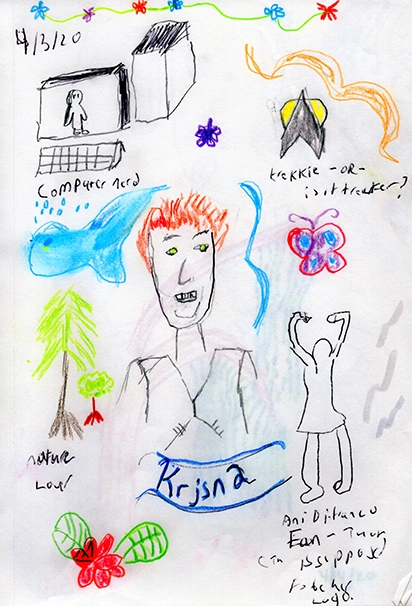 4/3/20
computer nerd
trekkie -OR-
is it trecker?
nature
Lover
Krjsna
Ani Difranco
Fan -
is suppose
to be her
Logo.